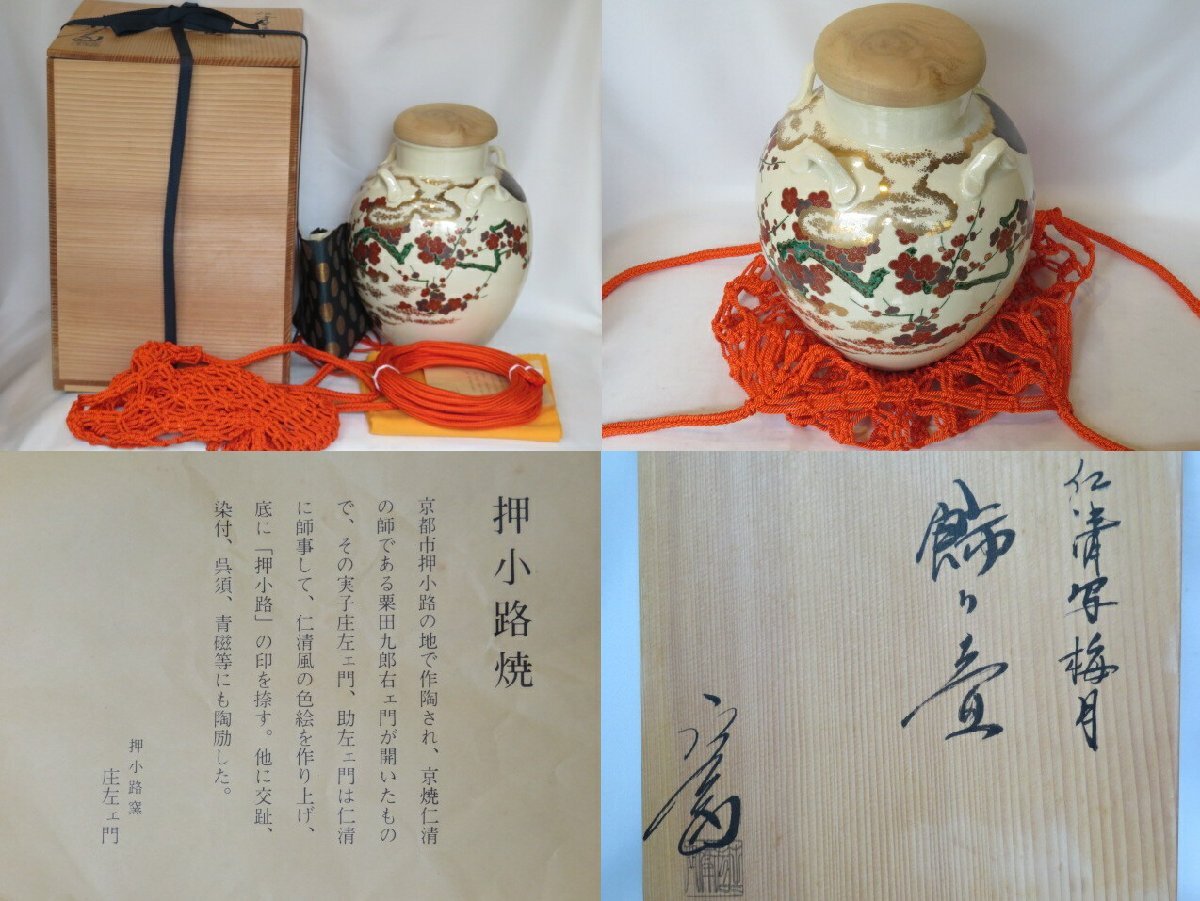 押小路焼
京都市押小路の地で作陶され、京焼仁清
の師である粟田九郎右ェ門が開いたもの
で、その実子庄左ェ門、助左ェ門は仁清
に師事して、仁清風の色絵を作り上げ、
底に「押小路」の印を捺す。他に交趾、
染付、呉須、青磁等にも陶励した。
押小路窯
庄左ェ門
仁清写梅月
飾り壷